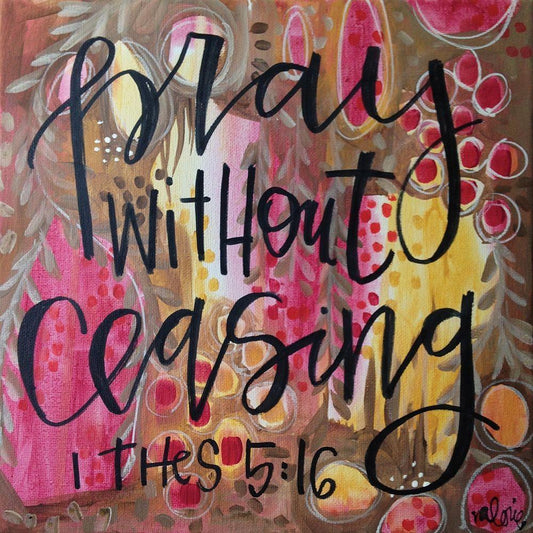 pray
without
ceasing
1 THES 5:16
valerie